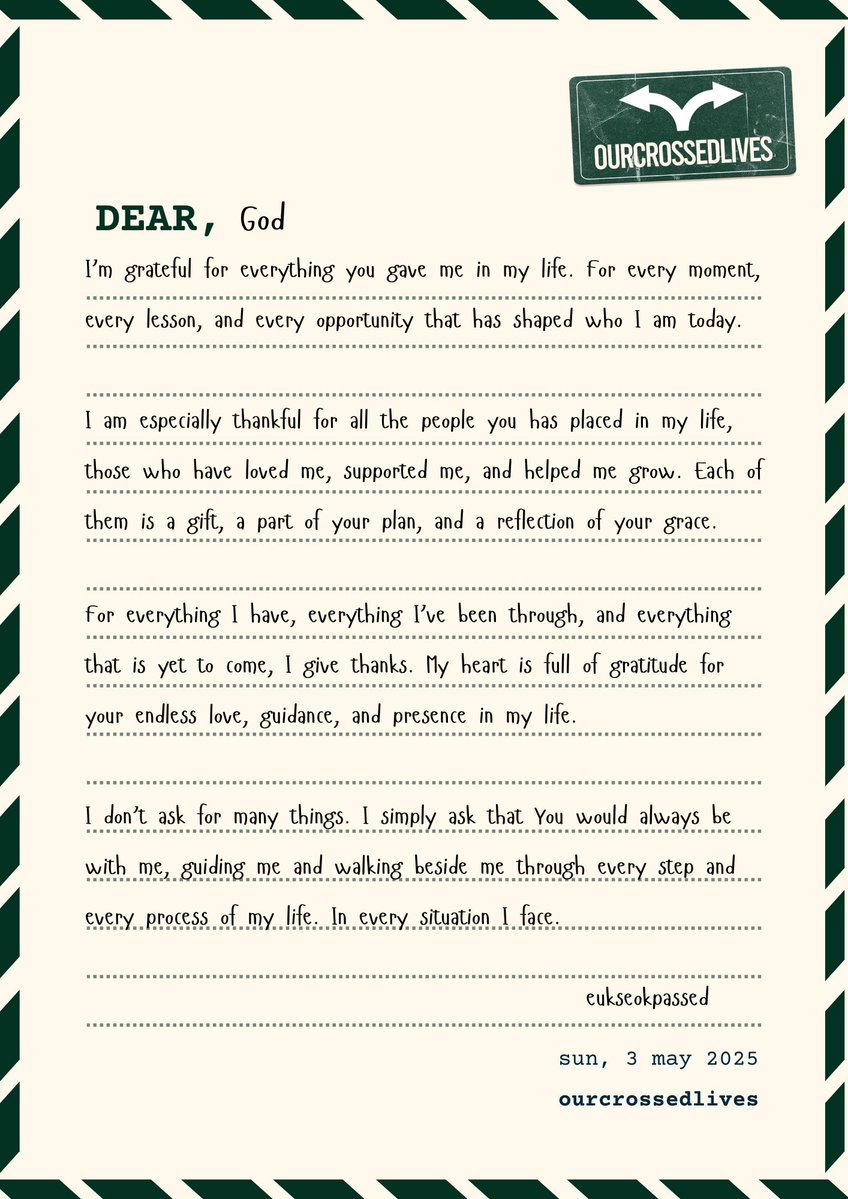 OURCROSSEDLIVES
DEAR, God
I'm grateful for everything you gave me in my life. For every moment,
every lesson, and every opportunity that has shaped who I am today.
I am especially thankful for all the people you has placed in my life,
those who have loved me, supported me, and helped me grow. Each of
them is a gift, a part of your plan, and a reflection of your grace.
For everything I have, everything I've been through, and everything
that is yet to come, I give thanks. My heart is full of gratitude for
your endless love, guidance, and presence in my life.
I don't ask for many things. I simply ask that You would always be
with me, guiding me and walking beside me through every step and
every process of my life. In every situation I face.
eukseokpassed
sun, 3 may 2025
ourcrossedlives